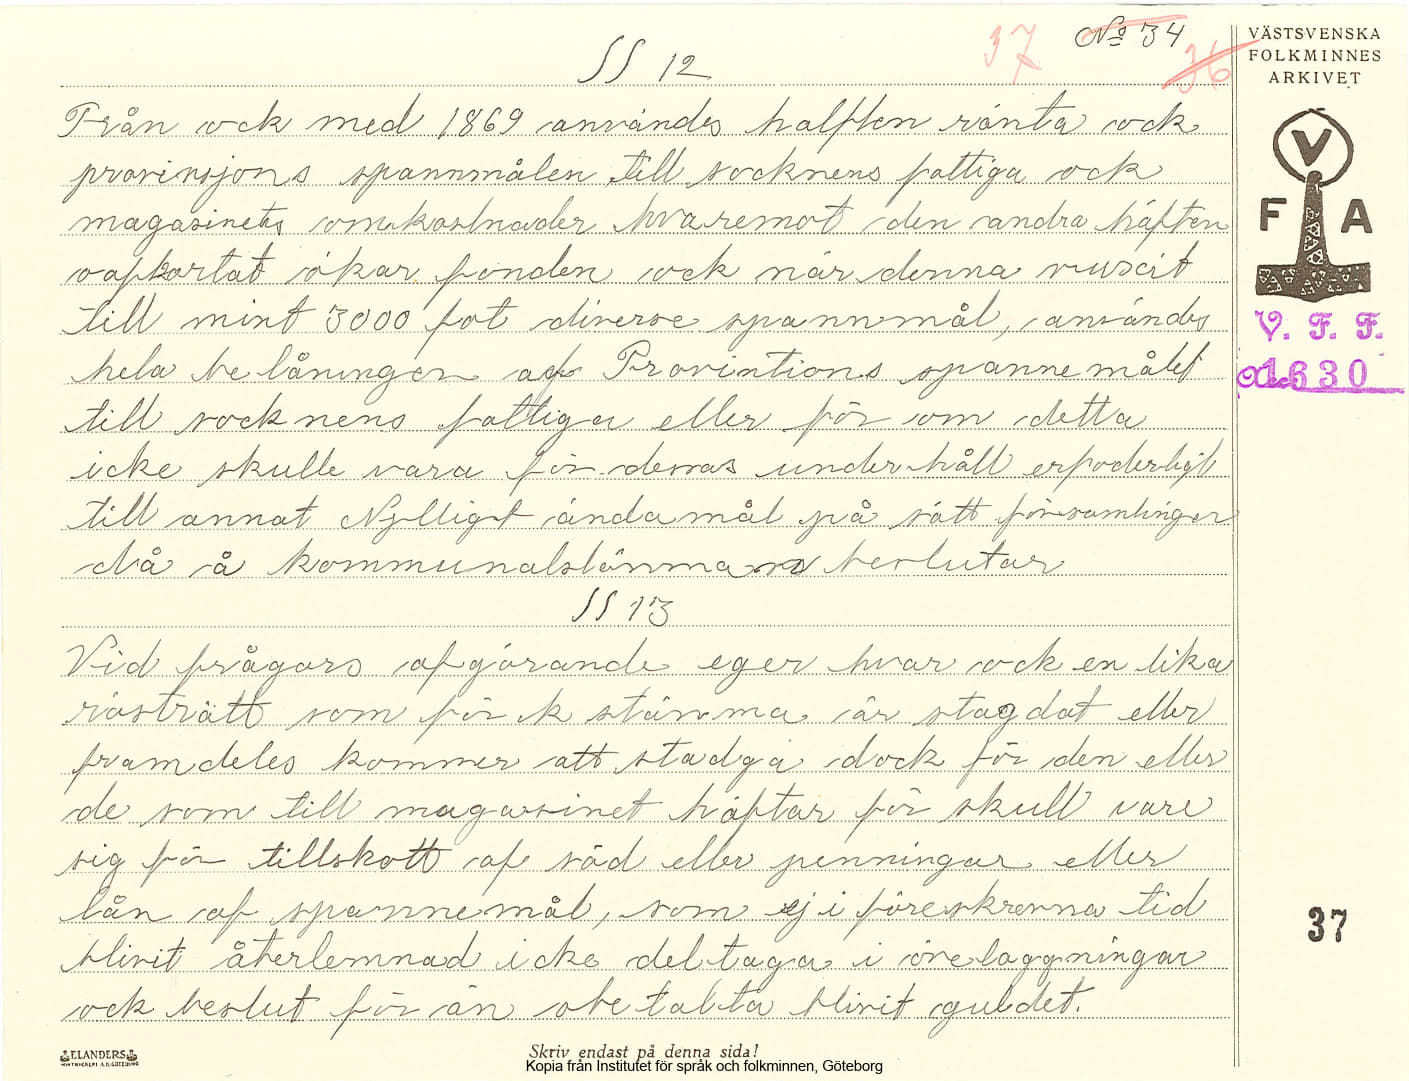 37 No 34
36
§§ 12
Från ock med 1869 användes halften ränta ock
provinsjons spannmålen till socknens fattiga ock
magasinets omkostnader hvaremot den andra häften
oafkortat ökar fonden ock när denna vuxit
till minst 3000 fot diverse spannmål, användes
hela belåningen af Provintions spannemålet
till socknens fattiga eller för om detta
icke skulle vara för deras underhåll erfoderligt
till annat Nyttigt ändamål på sätt församlingen
då å kommunalstämman beslutar
§§ 13
Vid frågors afgörande eger hvar ock en lika
rösträtt som för k stämma är stagdat eller
framdeles kommer att stadga dock för den eller
de som till magasinet häftar för skull vare
sig för tillskott af säd eller penningar eller
lån af spannemål, som ej i föreskrevna tid
blivit återlemnad icke deltaga i öfvelaggningar
ock beslut för än obetalta blivit guldet.
VÄSTSVENSKA
FOLKMINNES
ARKIVET
V
F A
V. F. F.
1630
37
ELANDERS
Skriv endast på denna sida!
Kopia från Institutet för språk och folkminnen, Göteborg